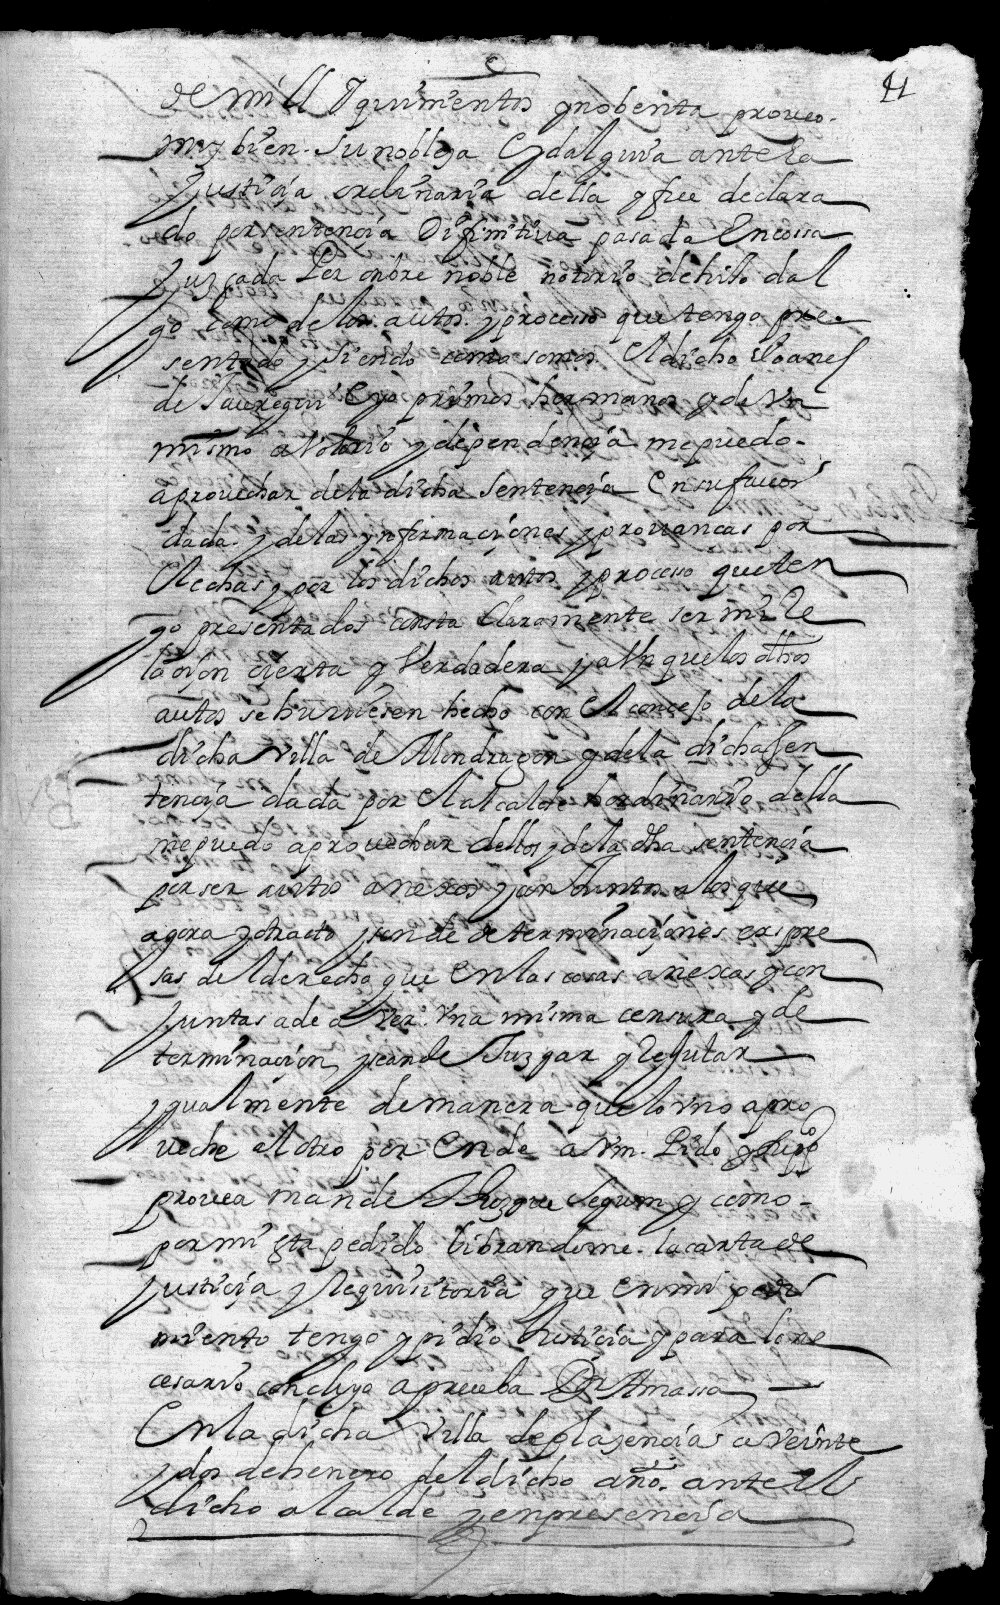 11
de mill y quinientos y nobenta proveo
muy bien su nobleza Cydalguia ante la
justicia ordinaria della y fue declara
do por sentencia Difinitiva pasada En cossa
juzgada Per onbre noble notorio de hijo dal
go como de los autos y proceso que tengo pre
sentado y siendo como somos El dicho Joanes
de Jauregui E yo primos hermanos y de Un
mismo abolorio y dependencia me puedo
aprovechar de la dicha sentencia En su fauor
dada y de las ynformaciones y provanças por
El echas y por los dichos autos y proceso que ten
go presentados consta Claramente ser mi Re
laçion cierta y Verdadera y aUnque los dhos
autos se huviesen hecho con El conçejo de la
dicha villa de Mondragon y de la dicha Sen
tencia dada por El alcalde hordinario della
me puedo aprovechar dellos y de la dha sentencia
por ser autos anexos y conjuntos a los que
agora y son de determinaçiones expre
sas del derecho que En las cosas anexas y con
juntas a de aver Una misma censura y de
terminacion y se an de Juzgar y Reputar
ygualmente de manera que lo Uno apro
veche al otro por Ende a Vm. Pido y supco
provea mande y Juzgue segun y como
por mi esta pedido librandome la carta de
justicia y Requisitoria que En mi pedi
miento tengo y pidio Justicia y para lo ne
cesario concluyo a prueba Amassa
En la dicha Villa de plasencia a veinte
y dos de henero del dicho año ante El
dicho alcalde y en presencia